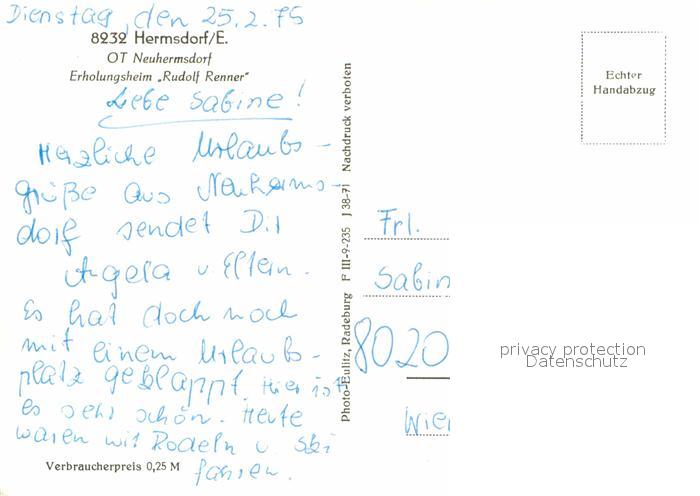 Dienstag, den 25.2.75
8232 Hermsdorf/E.
OT Neuhermsdorf
Erholungsheim „Rudolf Renner"
Liebe Sabine!
Herzliche Urlaubs-
grüße aus Neuherms-
dorf sendet Dir
Angela u. Eltern.
Es hat doch noch
mit einem Urlaubs-
platz geklappt. Hier ist
es sehr schön. Heute
waren wir Rodeln u. Ski
fahren.
Verbraucherpreis 0,25 M
Photo-Eulitz, Radeburg F III-9-235 J 38-71 Nachdruck verboten
Echter
Handabzug
Frl.
Sabin
8020
Wie
privacy protection
Datenschutz